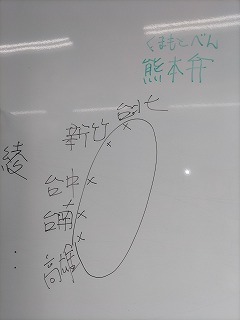 くまもとべん
熊本弁
台北
新竹
台中
台南
高雄
綾
: